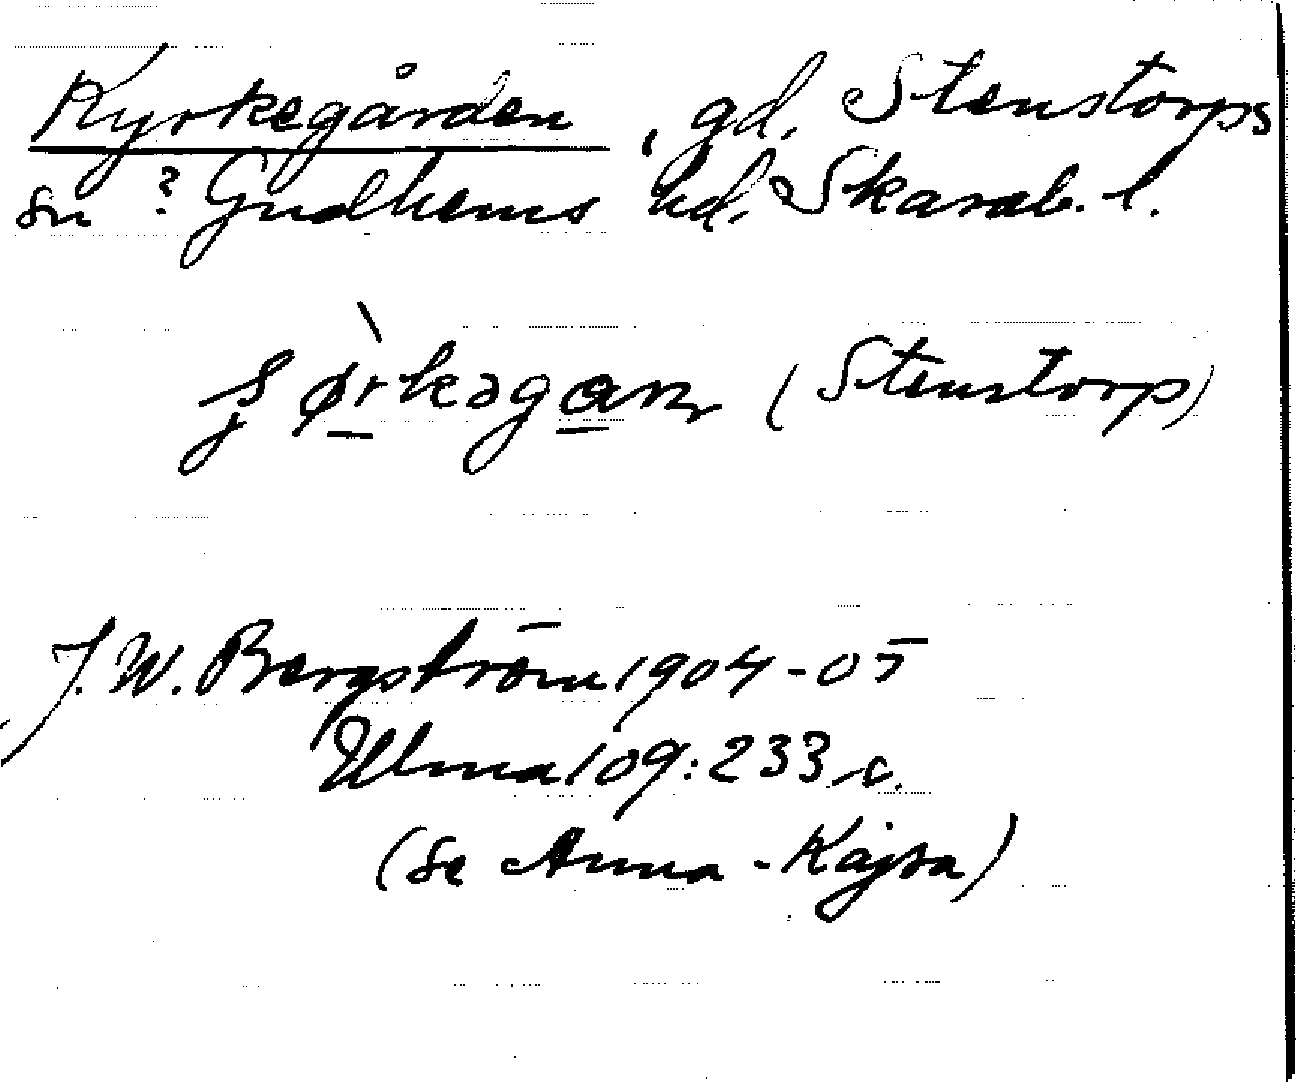 Kyrkegården, gd. Stenstorps
sn? Gudhems hd. Skarab. l.
(Stenstorp)
J. W. Bergström 1904-05
Ulma 109: 233 c.
(se Anna-Kajsa)